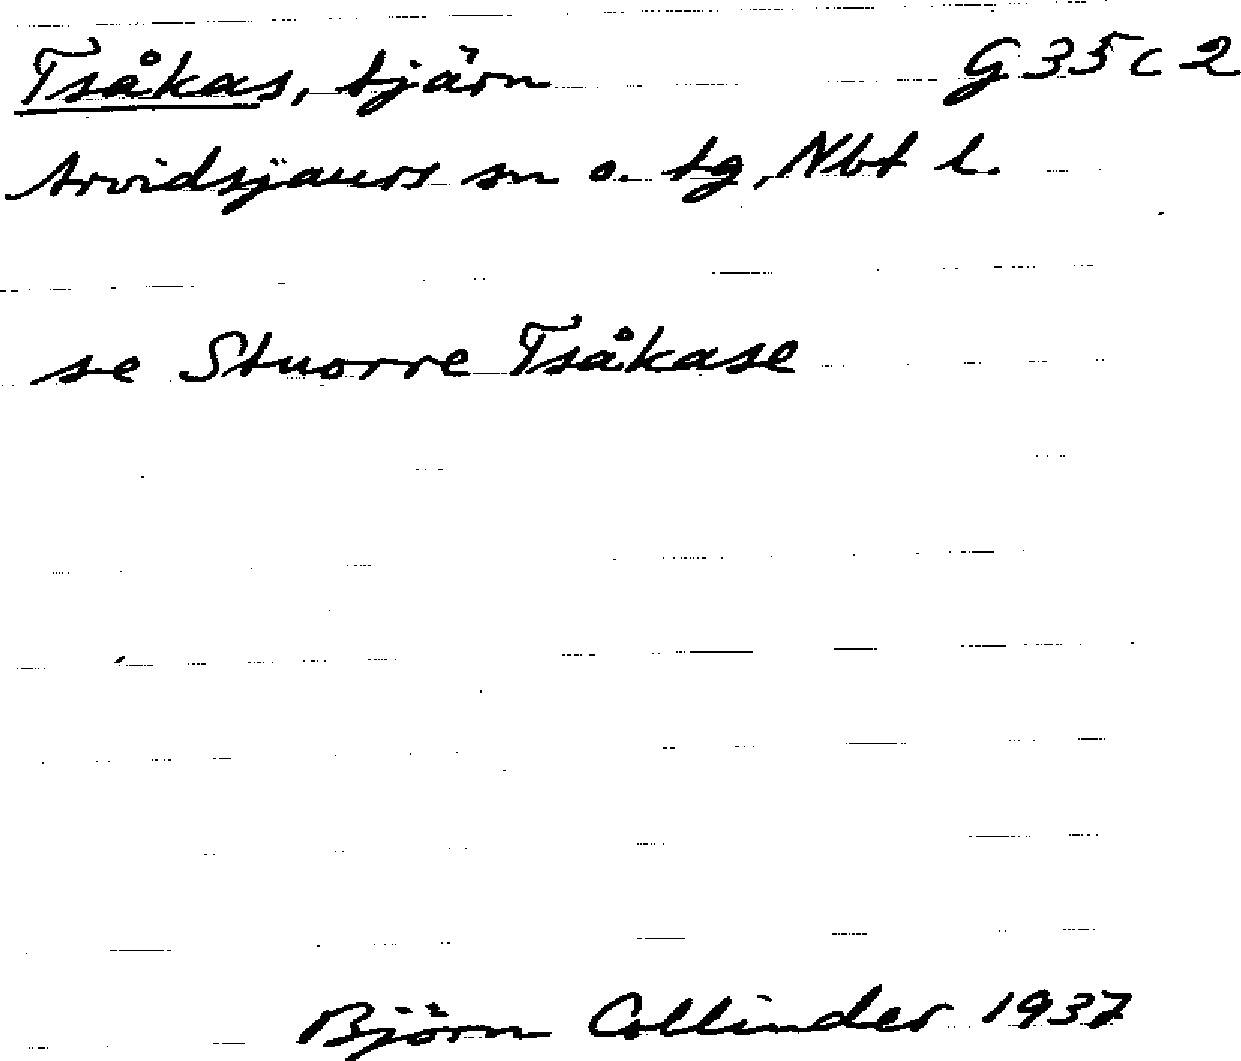 Tsåkas, tjärn G 35 c 2
Arvidsjaurs sn o. tg, Nbt l.
se Stuorre Tsåkase
Björn Collinder 1937